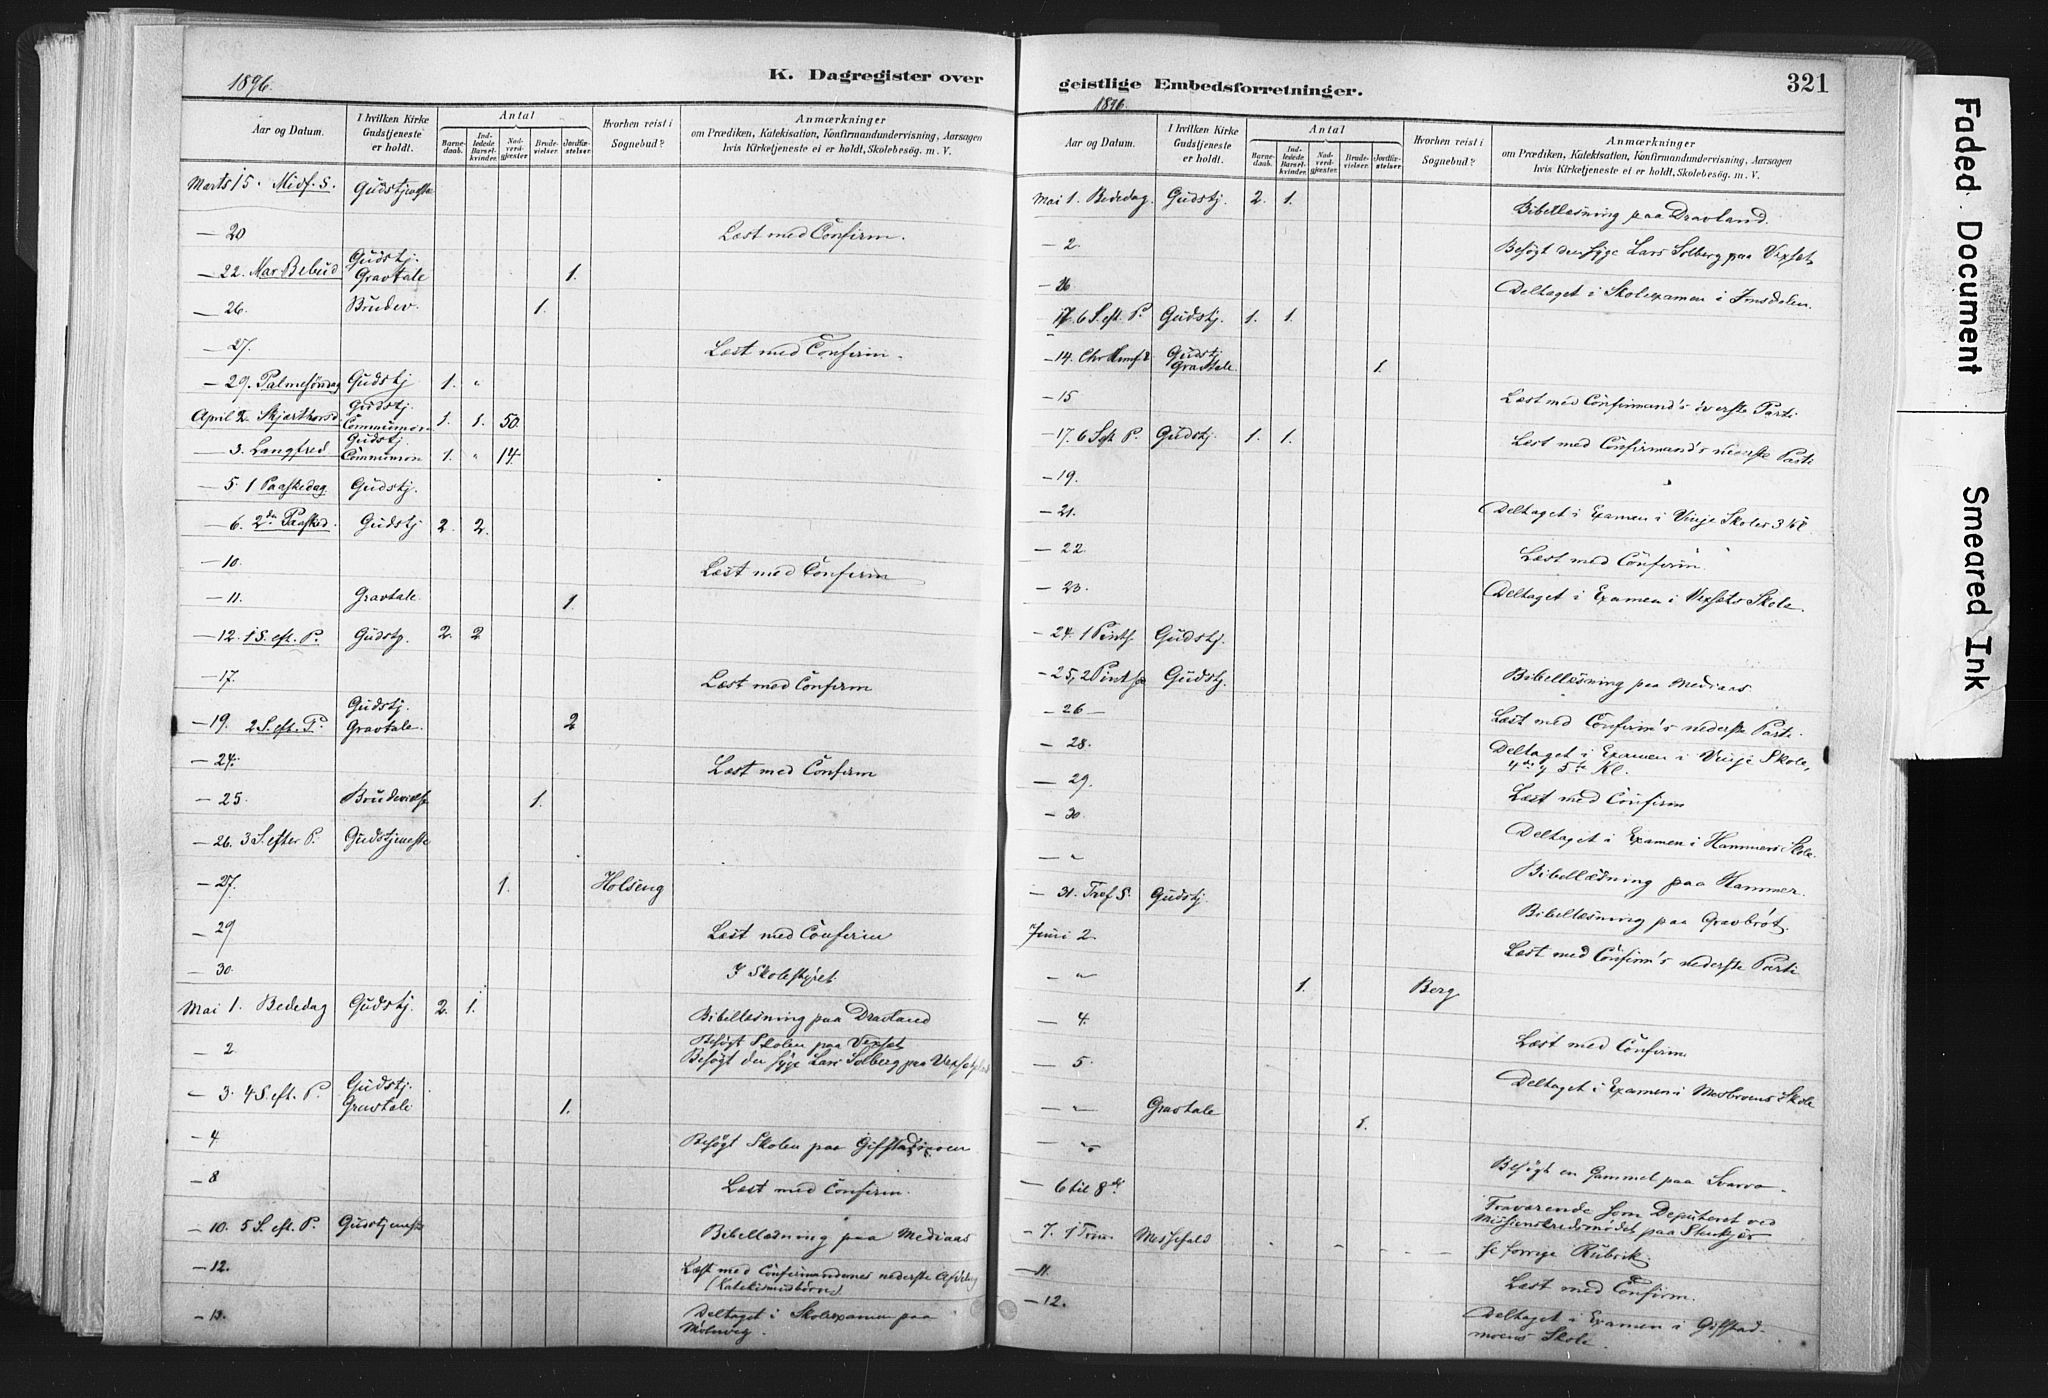 1896.
K. Dagregister over
Aar og Datum.
I hvilken Kirke Gudstjeneste er holdt.
Antal
Barnedaab.
Indledede Barselkvinder.
Nadverdgjæster.
Brudevielser.
Jordfæstelser.
Hvorhen reist i Sognebud?
Anmærkninger
om Prædiken, Katekisation, Konfirmandundervisning, Aarsagen
hvis Kirketjeneste ei er holdt, Skolebesøg. m. V.
Marts 15. Midf. S. Gudstjeneste
— 20 Læst med Confirm.
— 22. Mar Bebud Gudstj. Gravtale 1.
— 26. Brudev. 1.
— 27. Læst med Confirm.
— 29. Palmesöndag Gudstj 1. "
April 2 Skjærthorsd Gudstj. Communion 1. 1. 50.
— 3. Langfred Gudstj. Communion 1. " 14.
— 5. 1 Paaskedag Gudstj.
— 6. 2den Paasked. Gudstj 2. 2.
— 10. Læst med Confirm
— 11. Gravtale. 1.
— 12. 1 S. eft. P. Gudstj. 2. 2
— 17. Læst med Confirm
— 19. 2 S. eft. P. Gudstj. Gravtale. 2
— 24. Læst med Confirm
— 25. Brudevielse 1.
— 26. 3 S. efter P. Gudstjeneste
— 27. 1. Holseng
— 29 Læst med Confirm
— 30. I Skolestyret.
Mai 1. Bededag Gudstj. 2. 1. Bibellæsning paa Dravland
— 2 Besøgt Skolen paa Vexset
Besøgt den syge Lars Solberg paa
— 3. 4 S. eft. P. Gudstj. Gravtale 1.
— 4 Besøgt Skolen paa Gifstadmoen
— 8 Læst med Confirm.
— 10. 5 S. eft. P. Gudstjeneste Bibellæsning paa Mediaas
— 12. Læst med Confirmandernes nederste Afdeling
(Katekismusbörn)
— 13. Deltaget i Skolexamen paa

geistlige Embedsforretninger.
321
1896.
Aar og Datum.
I hvilken Kirke Gudstjeneste er holdt.
Antal
Barnedaab.
Indledede Barselkvinder.
Nadverdgjæster.
Brudevielser.
Jordfæstelser.
Hvorhen reist i Sognebud?
Anmærkninger
om Prædiken, Katekisation, Konfirmandundervisning, Aarsagen
hvis Kirketjeneste ei er holdt, Skolebesøg. m. V.
Mai 1. Bededag. Gudstj. 2. 1. Bibellæsning paa Dravland.
— 2. Besøgt den syge Lars Solberg paa Vexset
Deltaget i Skolexamen i Imsdalen.
17. 6 S. eft. P. Gudstj. 1. 1
— 14. Chr. Himf. d Gudstj Gravtale 1.
— 15 Læst med Confirmand's överste Parti
— 17. 6 S eft P. Gudstj. 1. 1. Læst med Confirmand's nederste Parti
— 19.
— 21. Deltaget i Examen i Vinje Skoles 3 Kl.
— 22 Læst med Confirm.
— 23. Deltaget i Examen i Vexsets Skole.
— 24. 1 Pints. Gudstj.
— 25, 2 Pintse Gudstj. Bibellæsning paa Mediaas
— 26 — Læst med Confirm's nederste Parti.
— 28. Deltaget i Examen i Vinje Skole,
4de y 5te Kl.
— 29. Læst med Confirm
— 30 Deltaget i Examen i Hammers Skole.
— " Bibellæsning paa Hammer.
— 31. Tref. S. Gudstj. Bibellæsning paa Gravbrøt.
Juni 2. Læst med Confirm's nederste Parti
— " 1. Berg
— 4. Læst med Confirm
— 5. Deltaget i Examen i Moebroens Skole
— " Gravtale 1.
— " Besøgt en Gammel paa Svarva.
— 6 til 8de Fraværende som Deputeret ved
Missionskredsmødet paa Stenkjær
— 7. 1 Trin. Messefald - - - - - Se forrige Rubrik.
— 11. Læst med Confirm.
— 12. Deltaget i Examen i Gifstad-
moens Skole.
Faded Document
Smeared Ink